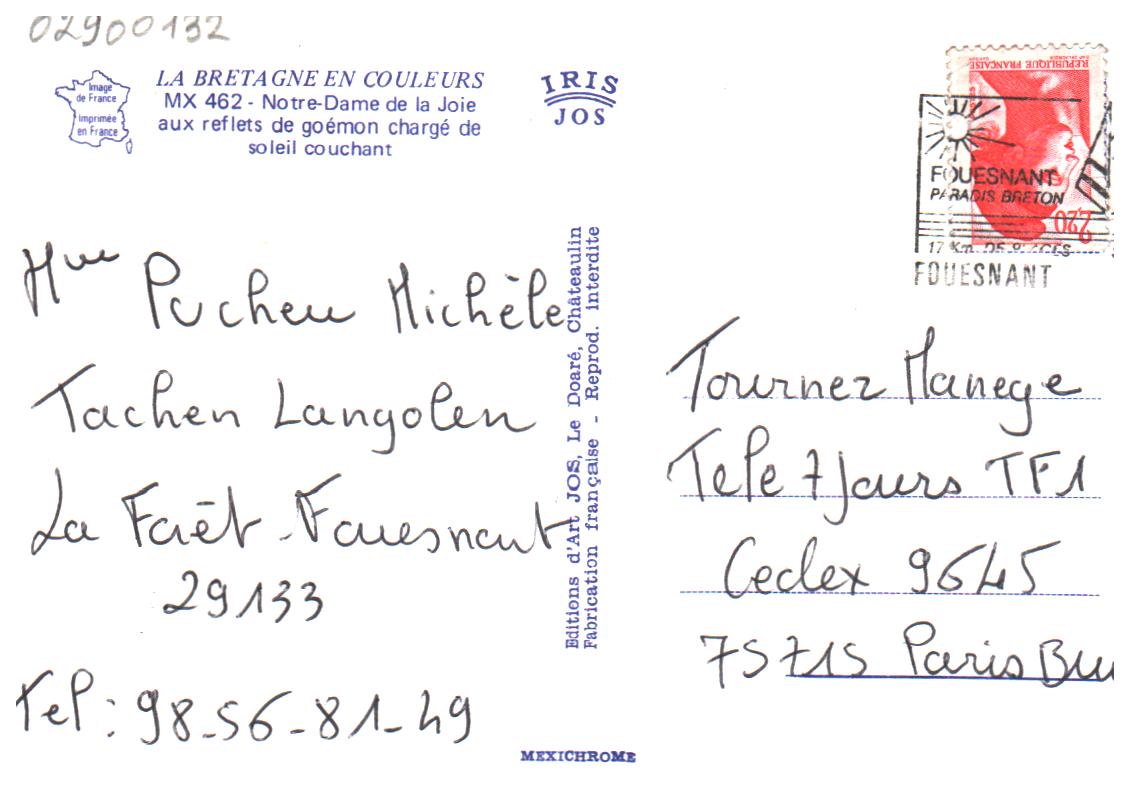 02900132
Image
de France
Imprimée
en France
LA BRETAGNE EN COULEURS
MX 462 - Notre-Dame de la Joie
aux reflets de goémon chargé de
soleil couchant
IRIS
JOS
REPUBLIQUE FRANÇAISE
2,20
FOUESNANT
PARADIS BRETON
17 Km DE PLAGES
FOUESNANT
Mme Pucheu Michèle
Tachen Langolen
La Forêt-Fouesnant
29133
Tel : 98-56-81-49
Editions d'Art JOS, Le Doaré, Châteaulin
Fabrication française - Reprod. interdite
Tournez Manege
Tele 7 Jours TF1
Cedex 9645
75715 Paris Bru
MEXICHROME